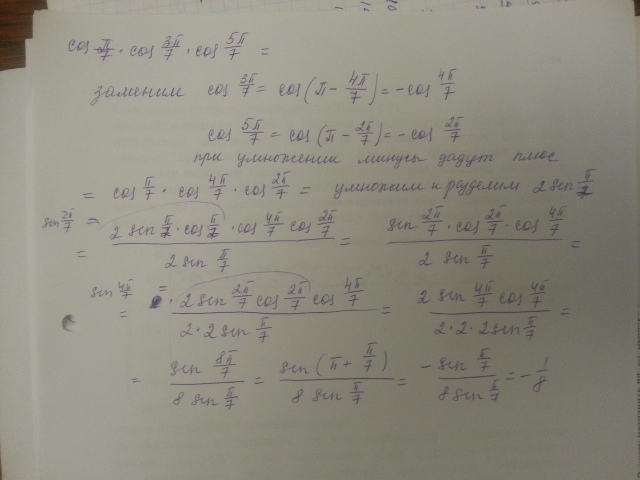 cos π/7 · cos 3π/7 · cos 5π/7 =
заменим cos 3π/7 = cos(π - 4π/7) = -cos 4π/7
cos 5π/7 = cos(π - 2π/7) = -cos 2π/7
при умножении минусы дадут плюс
= cos π/7 · cos 4π/7 · cos 2π/7 = умножим и разделим 2 sin π/7
sin 2π/7 =
= (2 sin π/7 · cos π/7 · cos 4π/7 cos 2π/7) / (2 sin π/7) = (sin 2π/7 · cos 2π/7 · cos 4π/7) / (2 sin π/7) =
sin 4π/7 =
= (2 sin 2π/7 cos 2π/7 cos 4π/7) / (2·2 sin π/7) = (2 sin 4π/7 cos 4π/7) / (2·2·2 sin π/7) =
= (sin 8π/7) / (8 sin π/7) = (sin(π + π/7)) / (8 sin π/7) = (-sin π/7) / (8 sin π/7) = -1/8